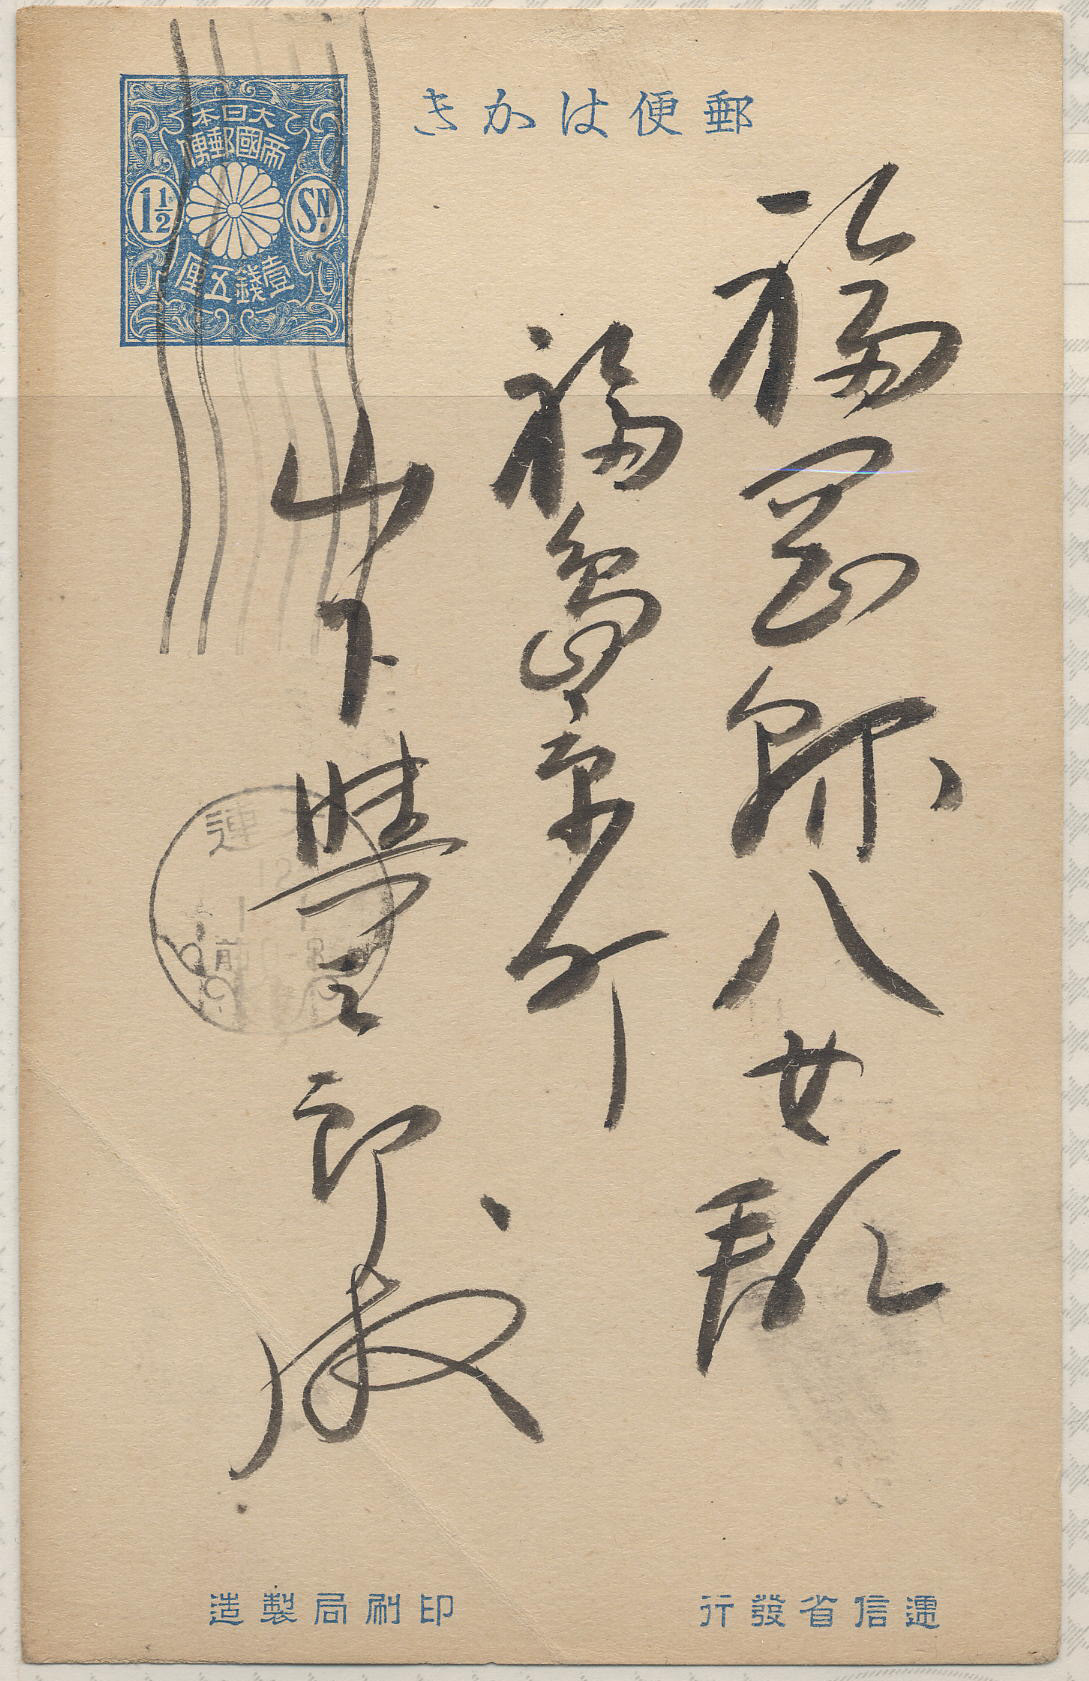 郵便はかき
大日本
帝國郵便
1½ SN.
壹錢五厘
福岡縣八女郡
福島京町
山下豊三郎様
大連
12
1 1
前0-8
遞信省發行
印刷局製造